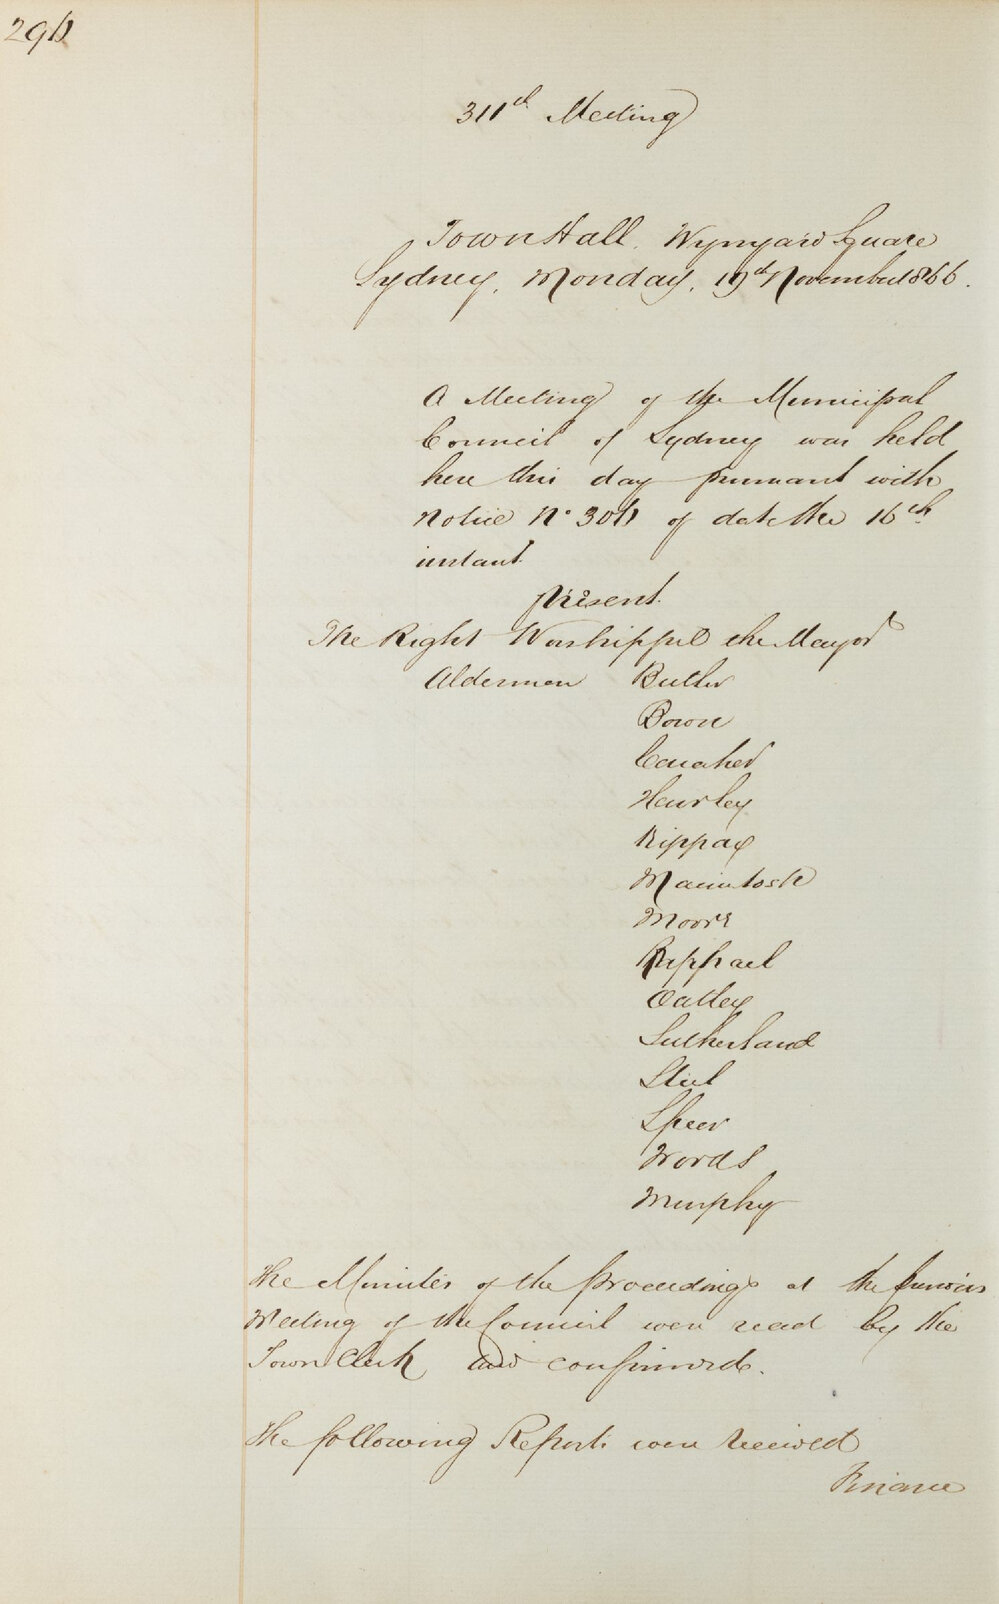 311th Meeting
Town Hall, Wynyard Square
Sydney, Monday, 19th November 1866.
A Meeting of the Municipal
Council of Sydney was held
here this day pursuant with
Notice No 304 of date the 16th
instant
present.
The Right Worshipful the Mayor
Aldermen Butler
Bown
Caraher
Hurley
Rippax
Macintosh
Moore
Raphael
Oatley
Sutherland
Steel
Speer
Woods
Murphy
The Minutes of the proceedings at the previous
Meeting of the Council were read by the
Town Clerk and confirmed.
The following Reports were received
Finance